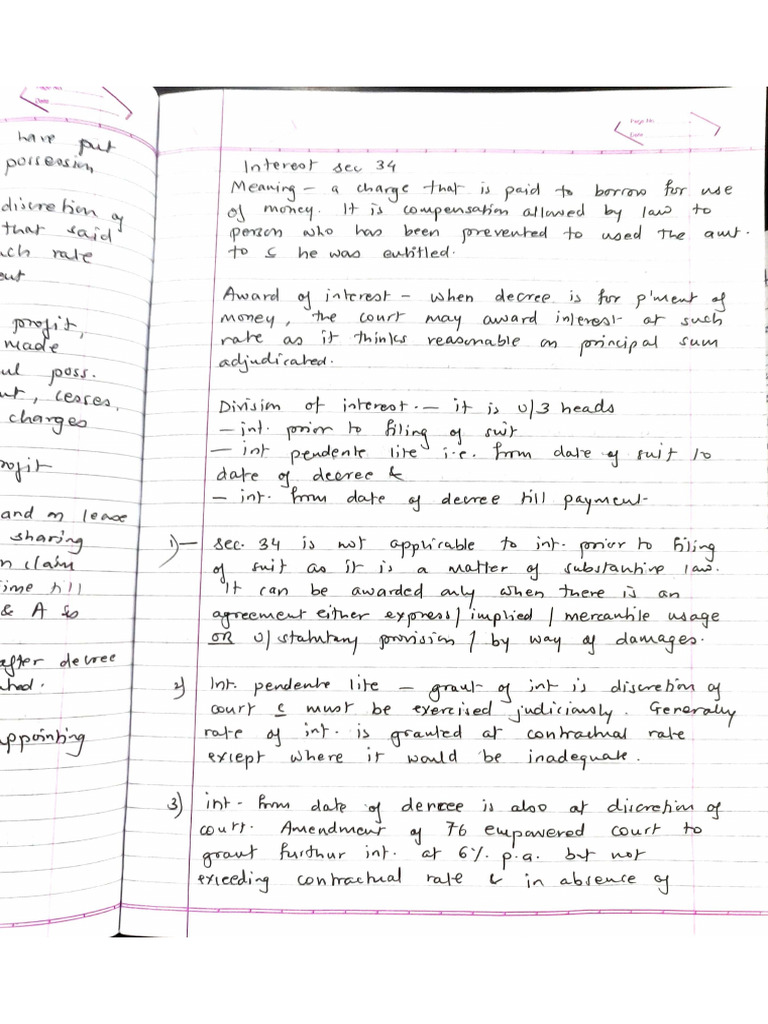 Page No.
Date
have put
possession
discretion of
that said
ch rate
profit,
made
ul poss.
ut, lesses,
charges
rofit
and on lease
sharing
n claim
ime till
& A so
after decree
appointing
Page No.
Date
Interest sec 34
Meaning – a charge that is paid to borrow for use
of money. It is compensation allowed by law to
person who has been prevented to used the amt.
to c̄ he was entitled.
Award of interest – when decree is for p'ment of
money, the court may award interest at such
rate as it thinks reasonable on principal sum
adjudicated.
Division of interest. – it is u/3 heads
– int. prior to filing of suit
– int pendente lite i.e. from date of suit to
date of decree &
– int. from date of decree till payment
1) – sec. 34 is not applicable to int. prior to filing
of suit as it is a matter of substantive law.
It can be awarded only when there is an
agreement either express/ implied / mercantile usage
OR u/ statutary provision / by way of damages.
2) Int. pendente lite – grant of int is discretion of
court c̄ must be exercised judiciously. Generally
rate of int. is granted at contractual rate
except where it would be inadequate.
3) int. from date of decree is also at discretion of
court. Amendment of 76 empowered court to
grant furthur int. at 6% p.a. but not
exceeding contractual rate & in absence of